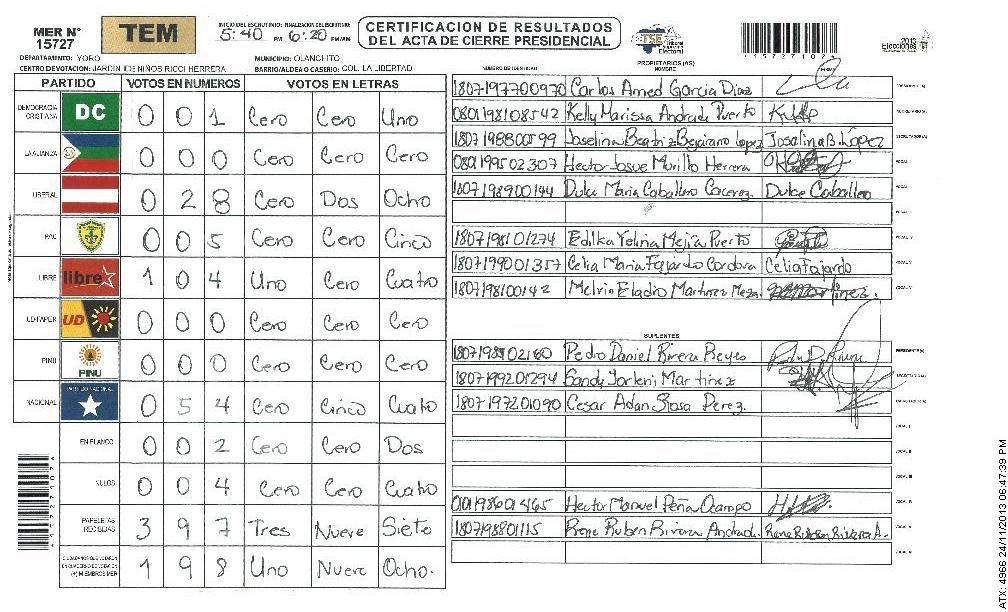 MER N° 15727
TEM
INICIO DEL ESCRUTINIO: FINALIZACION DEL ESCRUTINIO:
5:40 PM 6:20 PM/AM
CERTIFICACION DE RESULTADOS
DEL ACTA DE CIERRE PRESIDENCIAL
TSE Tribunal Supremo Electoral
1572710271
2013 Elecciones
DEPARTAMENTO: YORO
MUNICIPIO: OLANCHITO
CENTRO DE VOTACION: JARDIN DE NIÑOS RICCI HERRERA
BARRIO/ALDEA O CASERIO: COL. LA LIBERTAD
PARTIDO VOTOS EN NUMEROS VOTOS EN LETRAS
DEMOCRACIA CRISTIANA DC 0 0 1 Cero Cero Uno
LA ALIANZA 0 0 0 Cero Cero Cero
LIBERAL 0 2 8 Cero Dos Ocho
PAC 0 0 5 Cero Cero Cinco
LIBRE libre 1 0 4 Uno Cero Cuatro
UD-FAPER UD 0 0 0 Cero Cero Cero
PINU PINU 0 0 0 Cero Cero Cero
NACIONAL PARTIDO NACIONAL 0 5 4 Cero Cinco Cuatro
EN BLANCO 0 0 2 Cero Cero Dos
NULOS 0 0 4 Cero Cero Cuatro
PAPELETAS RECIBIDAS 3 9 7 Tres Nueve Siete
CIUDADANOS QUE VOTARON EN CUADERNO DE VOTACION (+) MIEMBROS MER 1 9 8 Uno Nueve Ocho.
PROPIETARIOS (AS)
NUMERO DE IDENTIDAD NOMBRE FIRMA
1807197700970 Carlos Amed Garcia Diaz PRESIDENTE (A)
0801198108542 Kelly Marissa Andrade Puerto SECRETARIO (A)
1807198800599 Joselina Beatriz Bejarano Lopez Josalina B. López ESCRUTADOR (A)
0801199502307 Hector Josue Murillo Herrera VOCAL I
1807198900144 Dulce Maria Caballero Cacerez Dulce Caballero
1807198101274 Edilka Yelina Mejia Puerto
1807199001357 Celia Maria Fajardo Cordova Celia Fajardo
1807198100142 Melvin Eladio Martinez Meza.
SUPLENTES
1807198802160 Pedro Daniel Rivera Reyes PRESIDENTE (A)
1807199201294 Sandy Yorleni Martinez SECRETARIO (A)
1807197201090 Cesar Adan Sosa Perez. ESCRUTADOR (A)
0101198601465 Hector Manuel Peña Ocampo
1807198801115 Rene Ruben Rivera Andrade. Rene Ruben Rivera A.
ATX: 4966 24/11/2013 06:47:39 PM